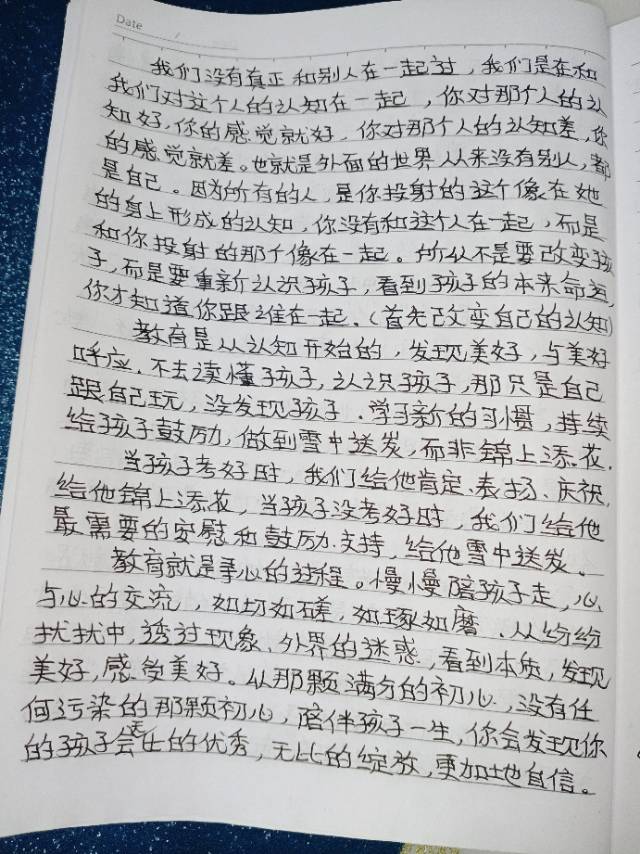 Date
我们没有真正和别人在一起过，我们是在和
我们对这个人的认知在一起，你对那个人的认
知好，你的感觉就好，你对那个人的认知差，你
的感觉就差。也就是外面的世界从来没有别人，都
是自己。因为所有的人，是你投射的这个像在她
的身上形成的认知，你没有和这个人在一起，而是
和你投射的那个像在一起。所以不是要改变孩
子，而是要重新认识孩子，看到孩子的本来命运，
你才知道你跟谁在一起。（首先改变自己的认知）
教育是从认知开始的，发现美好，与美好
呼应，不去读懂孩子，认识孩子，那只是自己
跟自己玩，没发现孩子．学习新的习惯，持续
给孩子鼓励，做到雪中送炭，而非锦上添花．
当孩子考好时，我们给他肯定、表扬、庆祝，
给他锦上添花，当孩子没考好时，我们给他
最需要的安慰和鼓励、支持，给他雪中送炭。
教育就是争心的过程。慢慢陪孩子走，心
与心的交流，如切如磋，如琢如磨．从纷纷
扰扰中，透过现象、外界的迷惑，看到本质，发现
美好，感受美好。从那颗满分的初心，没有任
何污染的那颗初心，陪伴孩子一生，你会发现你
的孩子会无比的优秀，无比的绽放，更加地自信。